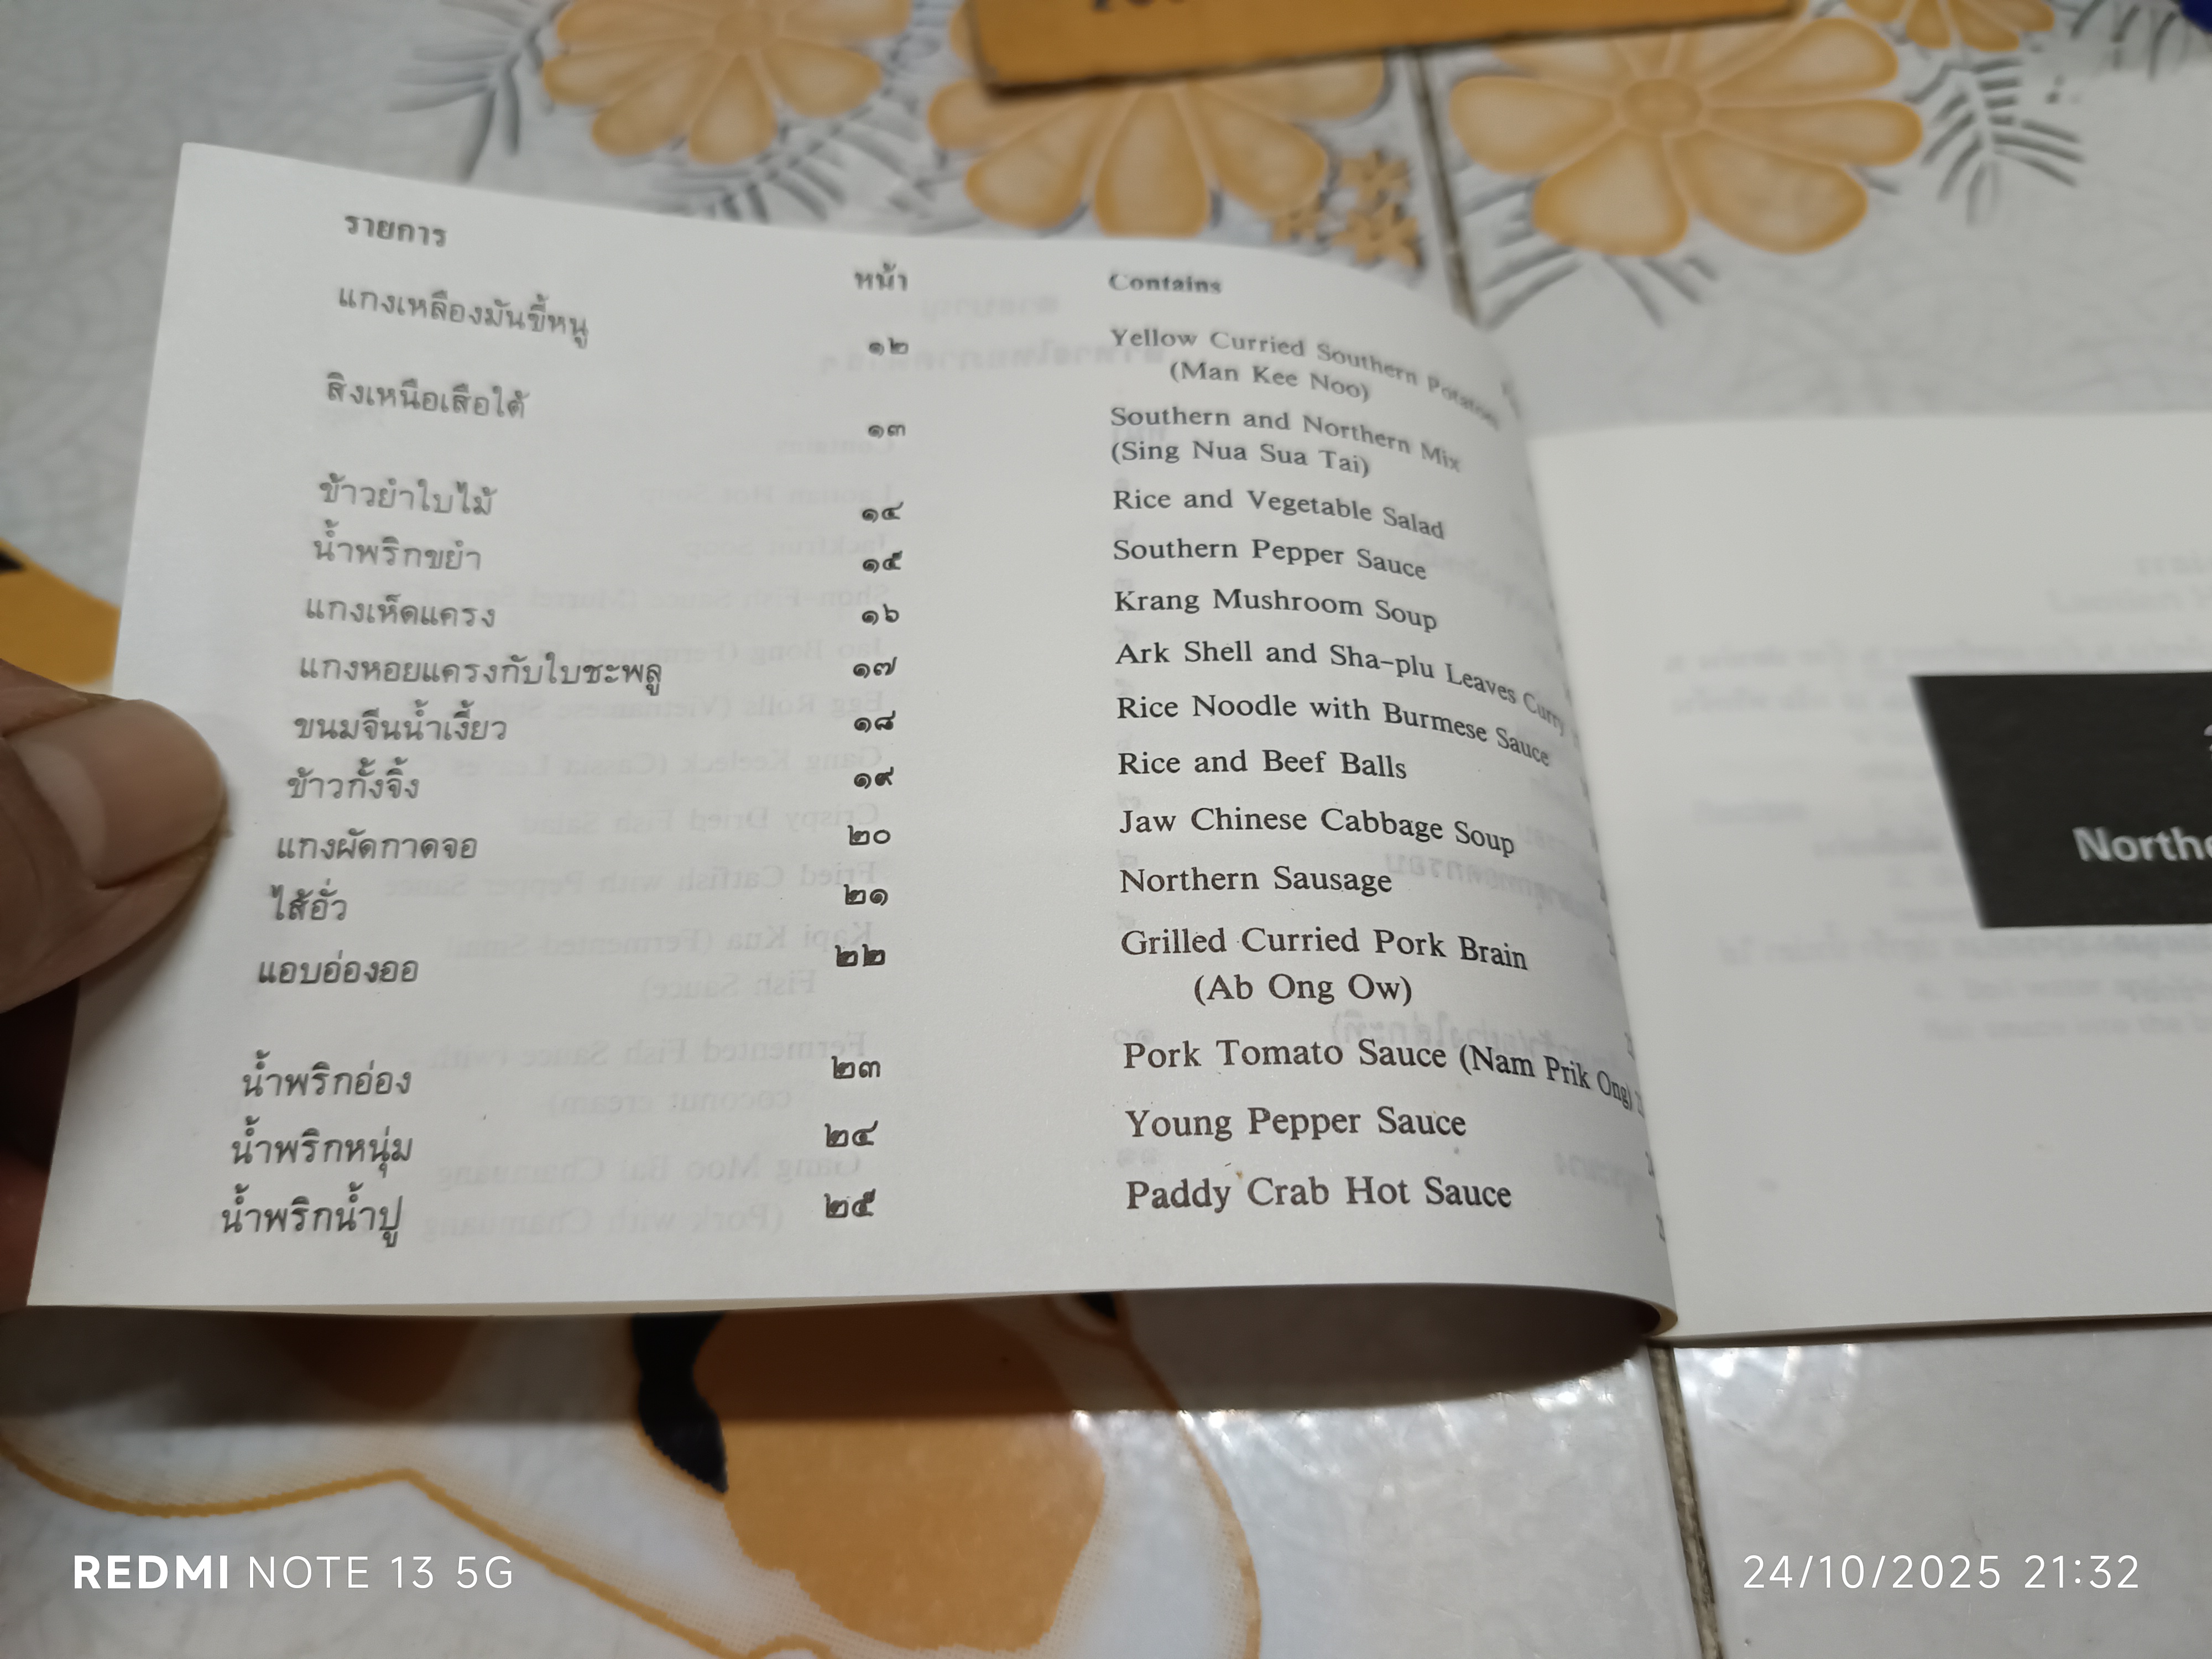 รายการ หน้า Contains
แกงเหลืองมันขี้หนู ๑๒ Yellow Curried Southern Potatoes
(Man Kee Noo)
สิงเหนือเสือใต้ ๑๓ Southern and Northern Mix
(Sing Nua Sua Tai)
ข้าวยำใบไม้ ๑๔ Rice and Vegetable Salad
น้ำพริกขยำ ๑๕ Southern Pepper Sauce
แกงเห็ดแครง ๑๖ Krang Mushroom Soup
แกงหอยแครงกับใบชะพลู ๑๗ Ark Shell and Sha-plu Leaves Curry
ขนมจีนน้ำเงี้ยว ๑๘ Rice Noodle with Burmese Sauce
ข้าวกั้งจิ้ง ๑๙ Rice and Beef Balls
แกงผัดกาดจอ ๒๐ Jaw Chinese Cabbage Soup
ไส้อั่ว ๒๑ Northern Sausage
แอบอ่องออ ๒๒ Grilled Curried Pork Brain
(Ab Ong Ow)
น้ำพริกอ่อง ๒๓ Pork Tomato Sauce (Nam Prik Ong)
น้ำพริกหนุ่ม ๒๔ Young Pepper Sauce
น้ำพริกน้ำปู ๒๕ Paddy Crab Hot Sauce
REDMI NOTE 13 5G
24/10/2025 21:32